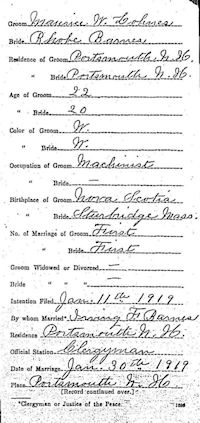 Groom Maurice W. Holmes
Bride Rhobe Barnes
Residence of Groom Portsmouth N.H.
" Bride Portsmouth N.H.
Age of Groom 22
" Bride 20
Color of Groom W.
" Bride W.
Occupation of Groom Machinist
" Bride —
Birthplace of Groom Nova Scotia
" Bride Sturbridge Mass.
No. of Marriage of Groom First
" Bride First
Groom Widowed or Divorced —
Bride " " —
Intention Filed Jan. 11th 1919
By whom Married* Irving F. Barnes
Residence Portsmouth N.H.
Official Station Clergyman
Date of Marriage Jan. 30th 1919
Place Portsmouth N.H.
[Record continued over.]
*Clergyman or Justice of the Peace.